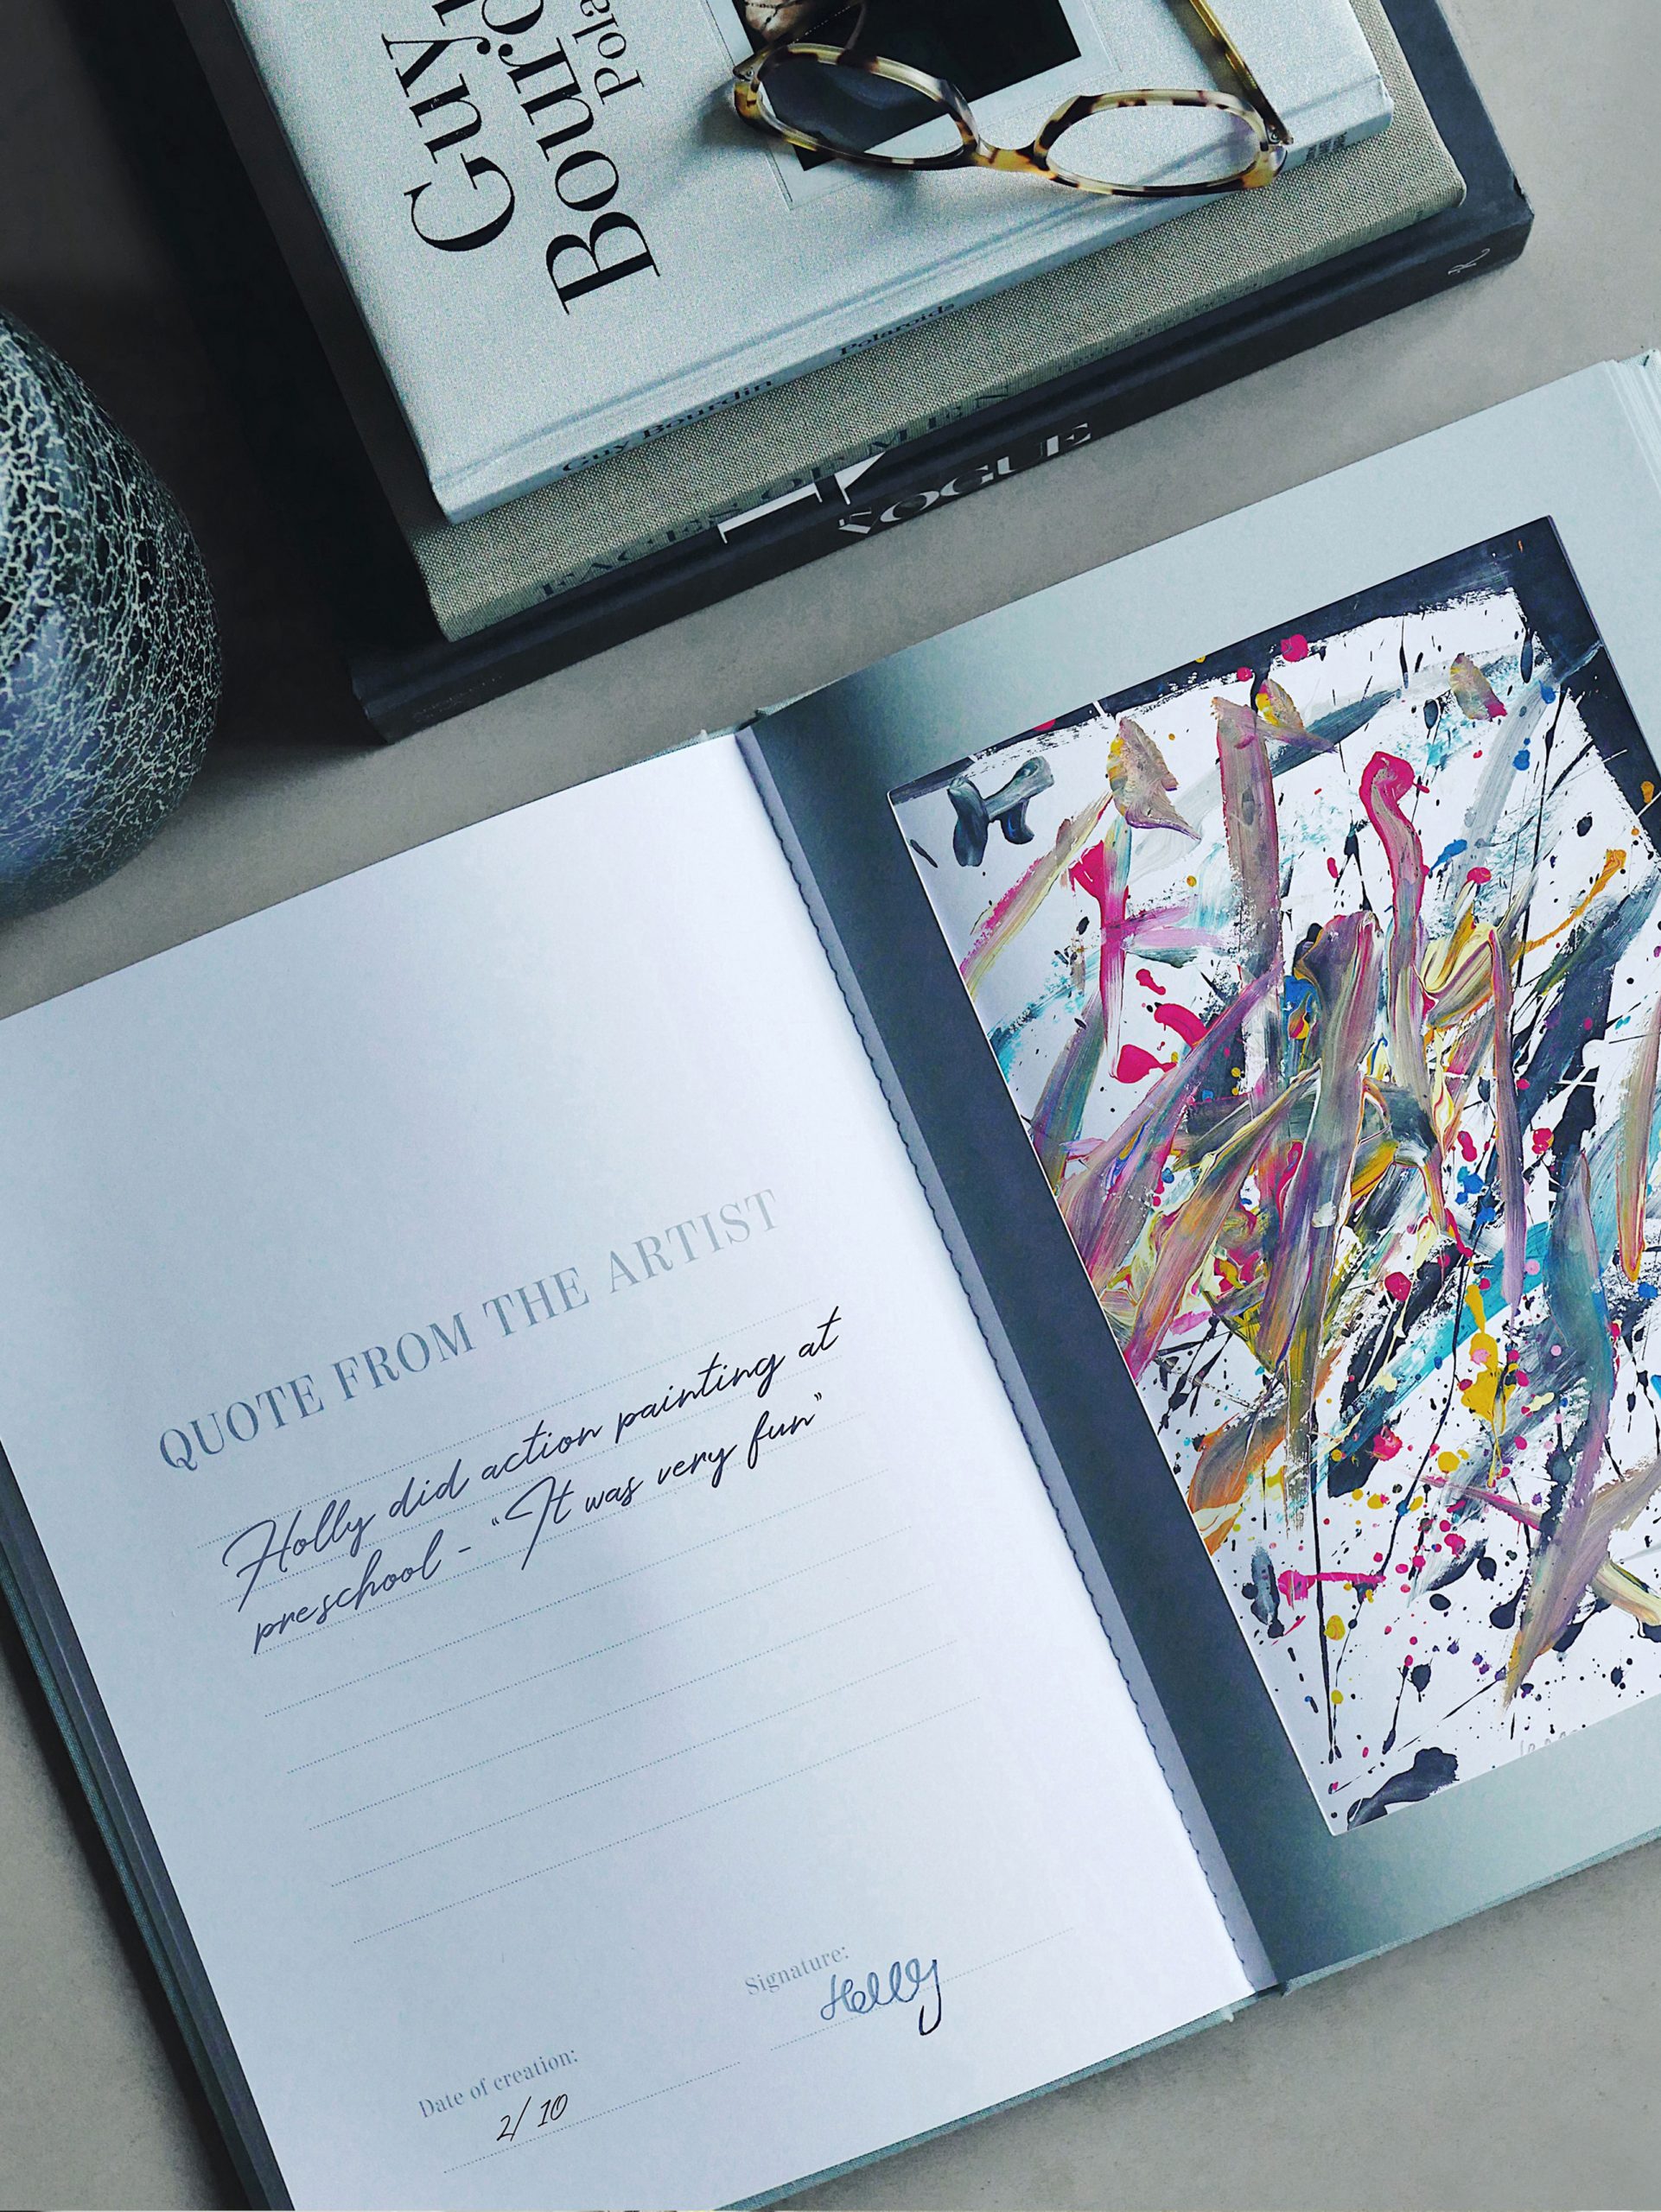 Guy
Guy Bourdin Polaroids
FACES OF MEN
VOGUE
QUOTE FROM THE ARTIST
Holly did action painting at
preschool - "It was very fun"
Signature:
Holly
Date of creation:
2/10